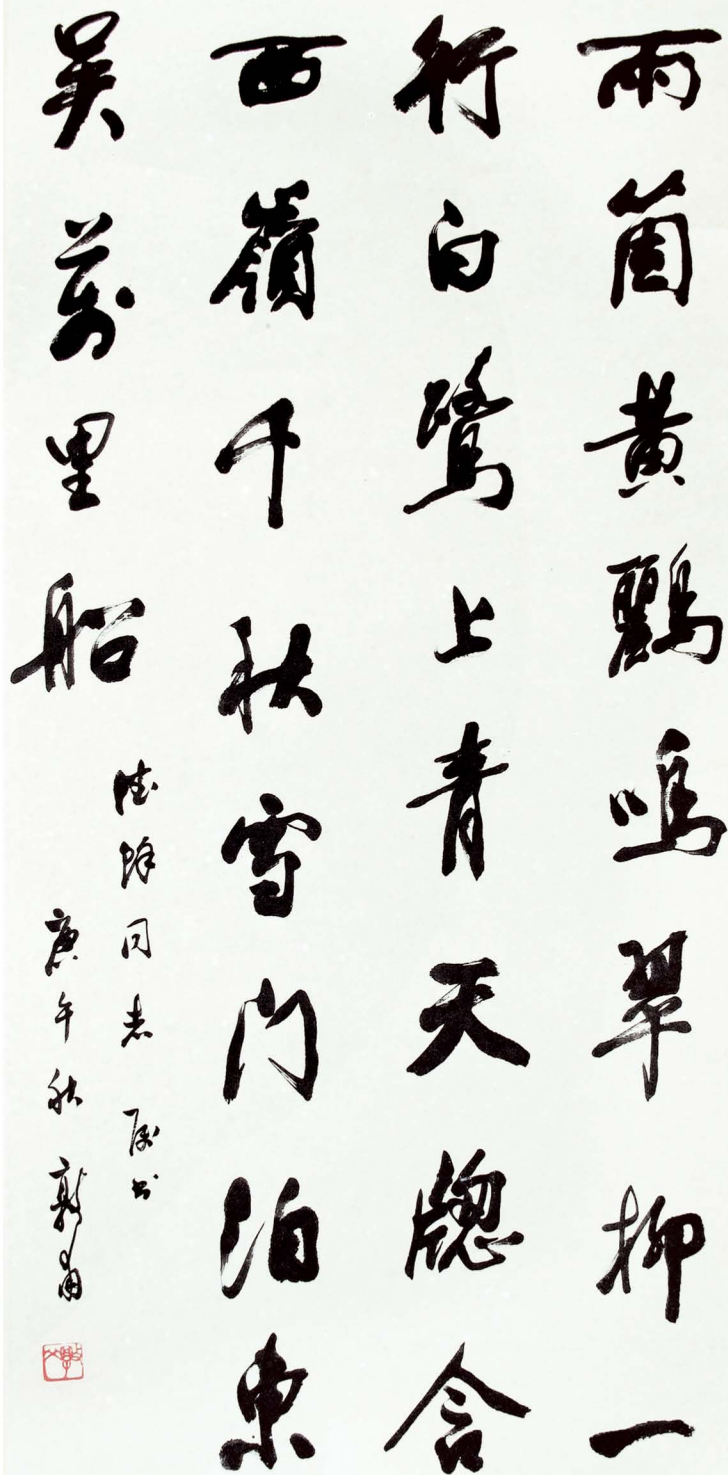 兩箇黃鸝鳴翠柳一
行白鷺上青天牕含
西嶺千秋雪門泊東
吳萬里船
同志属书
庚午秋